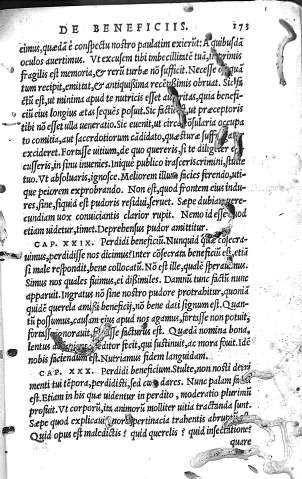 DE BENEFICIIS. 173
cimus, quædã è conspectu nostro paulatim exierũt: A quibusdã
oculos auertimus. Vt excusem tibi imbecillitatẽ tuã, inprimis
fragilis est memoria, & rerũ turbæ nõ sufficit. Necesse
tum recipit, emittat, & antiquissima recẽtissimis obruat. Sic
ctũ est, ut minima apud te nutricis esset auctoritas, quia
ciũ eius longius ætas sequẽs posuit. Sic factũ est, ut præceptoris
tibi nõ esset ulla ueneratio. Sic euenit, ut circa cõsularia occupa
to comitia, aut sacerdotiorum cãdidato, quæsturæ
excideret. Fortasse uitium, de quo quereris, si te diligẽter
cusseris, in sinu inuenies. Inique publico irasceris crimini,
tuo. Vt absoluaris, ignosce. Meliorem illum facies ferendo, uti-
que peiorem exprobrando. Non est, quod frontem eius indu-
res, sine, siquid est pudoris residui, seruet. Sæpe dubiam uere-
cundiam uox conuiciantis clarior rupit. Nemo id esse quod
etiam uidetur, timet. Deprehensus pudor amittitur.
CAP. XXIX. Perdidi beneficiũ. Nunquid quæ cõsecra-
uimus, perdidisse nos dicimus? Inter cõsecrata beneficiũ est, etiã
si male respondit, bene collocatũ. Nõ est ille, qualẽ sperauimus.
Simus nos quales fuimus, ei dissimiles. Damnũ tunc factũ nunc
apparuit. Ingratus nõ sine nostro pudore protrahitur, quoniã
quidẽ querela amissi beneficij, nõ bene dati signum est. Quan-
tũ possumus, causam eius apud nos agamus, fortasse non potuit,
fortasse ignorauit, fortasse facturus est. Quædã nomina bona,
lentus creditor fecit, qui sustinuit, ac mora fouit. Idẽ
nobis faciendum est. Nutriamus fidem languidam.
CAP. XXX. Perdidi beneficium. Stulte, non nosti detri
menti tui tẽpora, perdidisti, sed cũ dares. Nunc palam factũ
est. Etiam in his quæ uidentur in perdito, moderatio plurimũ
profuit. Vt corporũ, ita animorũ molliter uitia tractanda sunt.
Sæpe quod explicari pertinacia trahentis abruptum
Quid opus est maledictis? quid querelis? quid insectatione?
quare